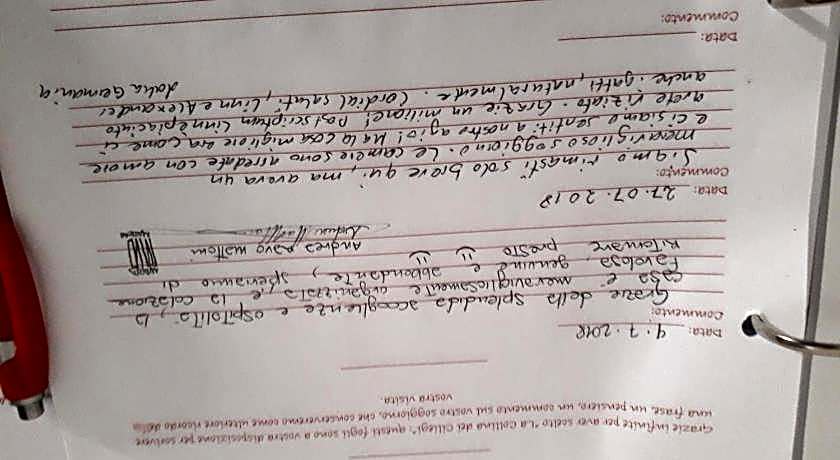 Grazie infinite per aver scelto "La Collina dei Ciliegi": questi fogli sono a vostra disposizione per scrivere
una frase, un pensiero, un commento sul vostro soggiorno, che conserveremo come ulteriore ricordo della
vostra visita.
Data: 9.7.2018
Commento:
Grazie della splendida accoglienza e ospitalità, la
casa è meravigliosamente organizzata, e la colazione
favolosa, genuina e abbondante, speriamo di
ritornare presto
Andrea
Data: 27.07.2018
Commento:
Siamo rimasti solo breve qui, ma avava un
meraviglioso soggiorno. Le camere sono arredate con amore
e ci siamo sentiti a nostro agio! Ma la cosa migliore era come ci
avete viziato. Grazie un milione! Postscriptum Linne piaciuto
anche i gatti, naturalmente. Cordial saluti, Linn e Alexander
dalla Germania
Data:
Commento: